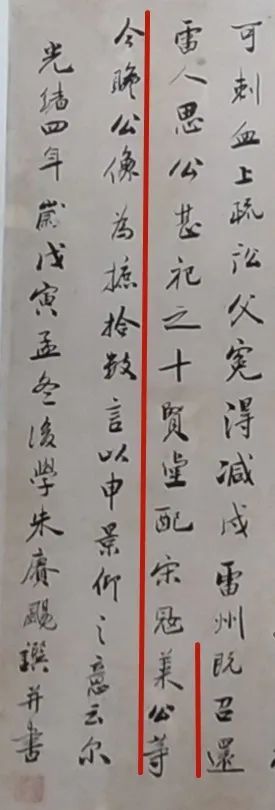 可刺血上疏訟父寃得减戍雷州既召還
雷人思公甚祀之十賢堂配宋冦萊公等
今睹公像為摭拾數言以申景仰之意云尔
光緒四年歲戊寅孟冬後學朱賡颺譔并書